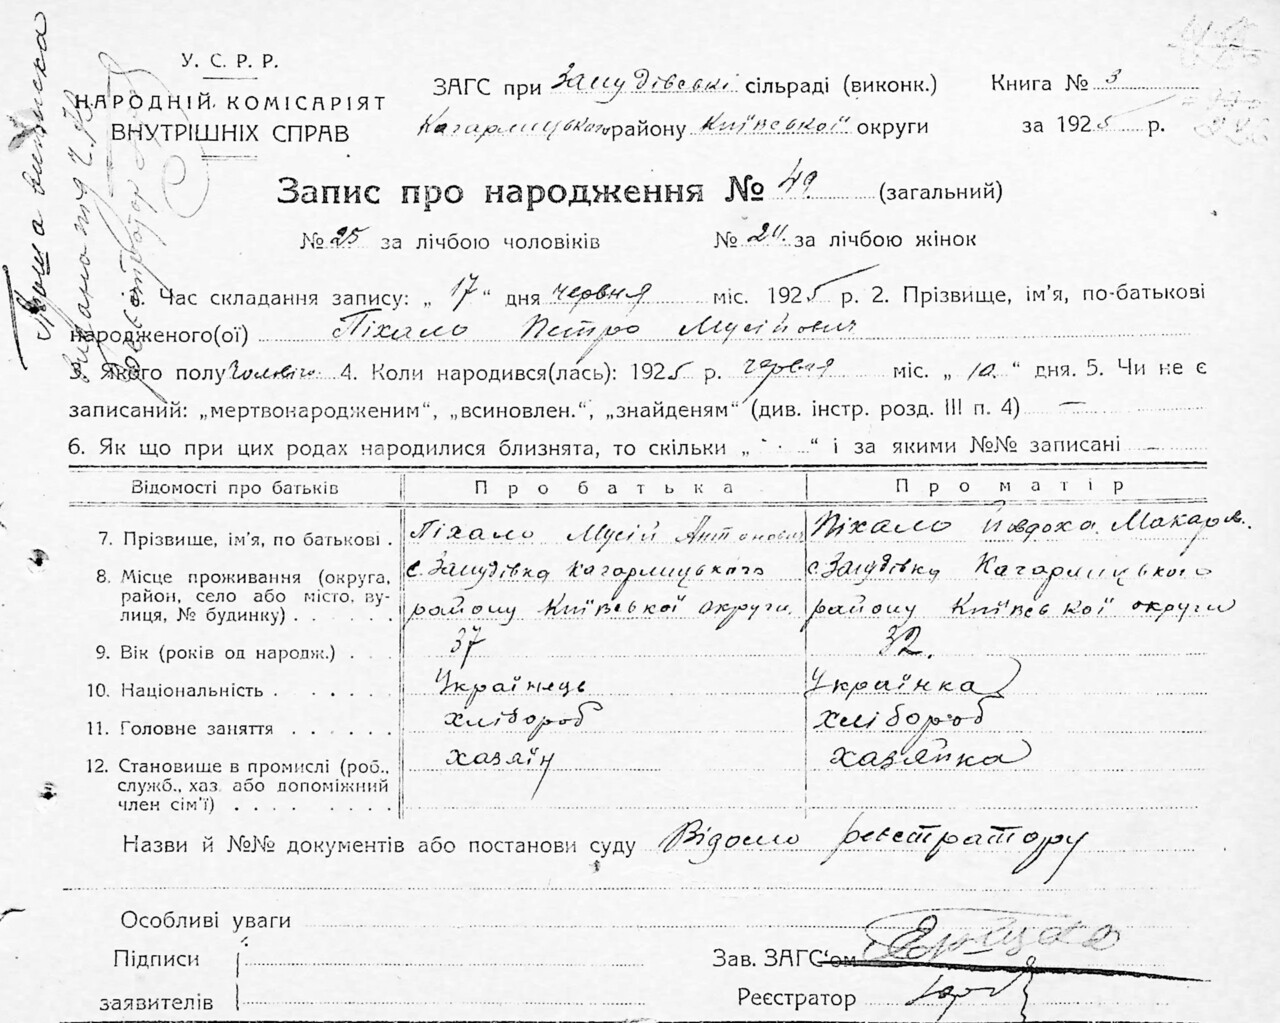 У. С. Р. Р.
НАРОДНІЙ КОМІСАРІЯТ
ВНУТРІШНІХ СПРАВ
ЗАГС при сільраді (виконк.)
Кагарлицького району Київської округи
Книга № 3
за 1925 р.
Запис про народження № 49 (загальний)
№ 25 за лічбою чоловіків № 24 за лічбою жінок
1. Час складання запису: „ 17 “ дня червня міс. 1925 р. 2. Прізвище, ім'я, по-батькові
народженого(ої) Піхало Петро Мусійович
3. Якого полу 4. Коли народився(лась): 1925 р. червня міс. „ 10 “ дня. 5. Чи не є
записаний: „мертвонародженим“, „всиновлен.“, „знайденям“ (див. інстр. розд. III п. 4) —
6. Як що при цих родах народилися близнята, то скільки „ “ і за якими №№ записані
Відомості про батьків Про батька Про матір
7. Прізвище, ім'я, по батькові . Піхало Мусій Антонович Піхало Йовдоха Макаров.
8. Місце проживання (округа, с. Кагарлицького с. Кагарлицького
район, село або місто, ву- району Київської округи району Київської округи
лиця, № будинку) . . . . . .
9. Вік (років од народж.) . . . 37 32.
10. Національність . . . . . . Українець Українка
11. Головне заняття . . . . . . хлібороб хлібороб
12. Становище в промислі (роб., хазяїн хазяйка
служб., хаз. або допоміжний
член сім'ї) . . . . . . . .
Назви й №№ документів або постанови суду Відомо реєстратору
Особливі уваги
Підписи
заявителів
Зав. ЗАГС'ом
Реєстратор